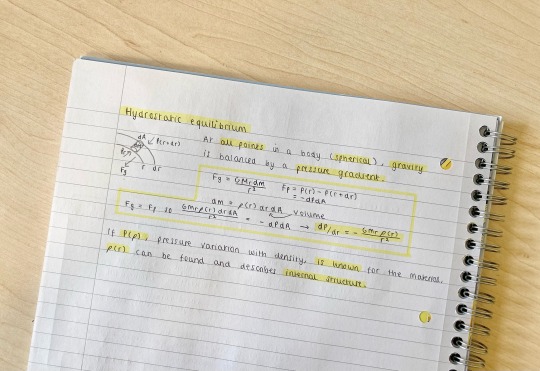 Hydrostatic equilibrium
At all points in a body (spherical), gravity
is balanced by a pressure gradient.
dA
P(r+dr)
P(r)
Fg
r dr
Fg = GMrdm/r² Fp = P(r) - P(r+dr)
= -dPdA
dm = ρ(r)drdA
volume
Fg = Fp so GMrρ(r)drdA/r² = -dPdA → dP/dr = - GMrρ(r)/r²
If P(ρ), pressure variation with density, is known for the material,
ρ(r) can be found and describes internal structure.